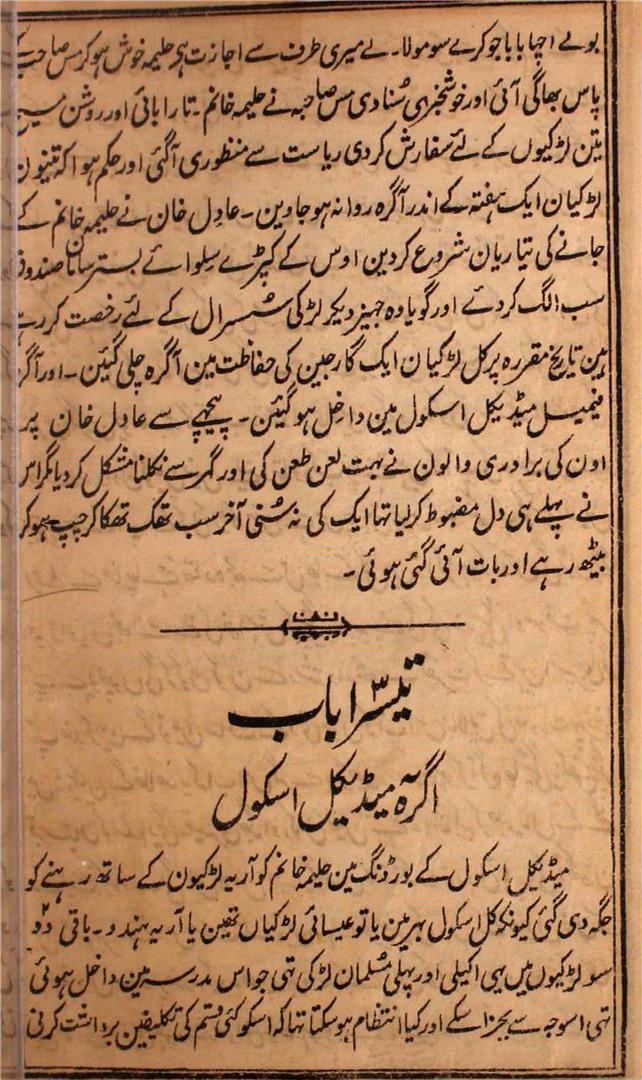 بولے اچہا بابا جو کرے سو مولا۔ لے میری طرف سے اجازت ہی حلیمہ خوش ہو کر مس صاحب کے
پاس بھاگی آئی اور خوشخبری سُنا دی مس صاحبہ نے حلیمہ خانم۔ تارا بائی اور روشن مسیح
تین لڑکیوں کے لئے سفارش کر دی ریاست سے منظوری آگئی اور حکم ہوا کہ تینون
لڑکیان ایک ہفتہ کے اندر آگرہ روانہ ہو جاوین۔ عادل خان نے حلیمہ خانم کے
جانے کی تیاریان شروع کردین اوس کے کپڑے سِلوائے بستر سامان صندوق
سب الگ کر دئے اور گویا وہ جہیز دیکر لڑکی سُسرال کے لئے رخصت کر رہے
ہین تاریخ مقررہ پر کل لڑکیان ایک گارجین کی حفاظت مین آگرہ چلی گیئن۔ اور آگرہ
فیمیل میڈیکل اسکول مین داخِل ہو گیئن۔ پیچہے سے عادل خان پر
اون کی برادری والون نے بہت لعن طعن کی اور گہر سے نکلنا مشکل کر دیا مگر اس
نے پہلے ہی دل مضبوط کر لیا تہا ایک کی نہ سُنی آخر سب تھک تھکا کر چپ ہو کر
بیٹھ رہے اور بات آئی گئی ہوئی۔
تیسرا باب ۳
آگرہ میڈیکل اسکول
میڈیکل اسکول کے بورڈنگ مین حلیمہ خانم کو آریہ لڑکیون کے ساتھ رہنے کو
جگہ دی گئی کیونکہ کل سکول بہر مین یا تو عیسائی لڑکیاں تھین یا آریہ ہندو۔ باقی دو ۲
سو لڑکیوں میں یہی اکیلی اور پہلی مُسلمان لڑکی تہی جو اس مدرسہ مین داخل ہوئی
تہی اسوجہ سے بجز اسکے اور کیا انتظام ہو سکتا تہا کہ اسکو کئی قسم کی تکلیفین برداشت کرنی